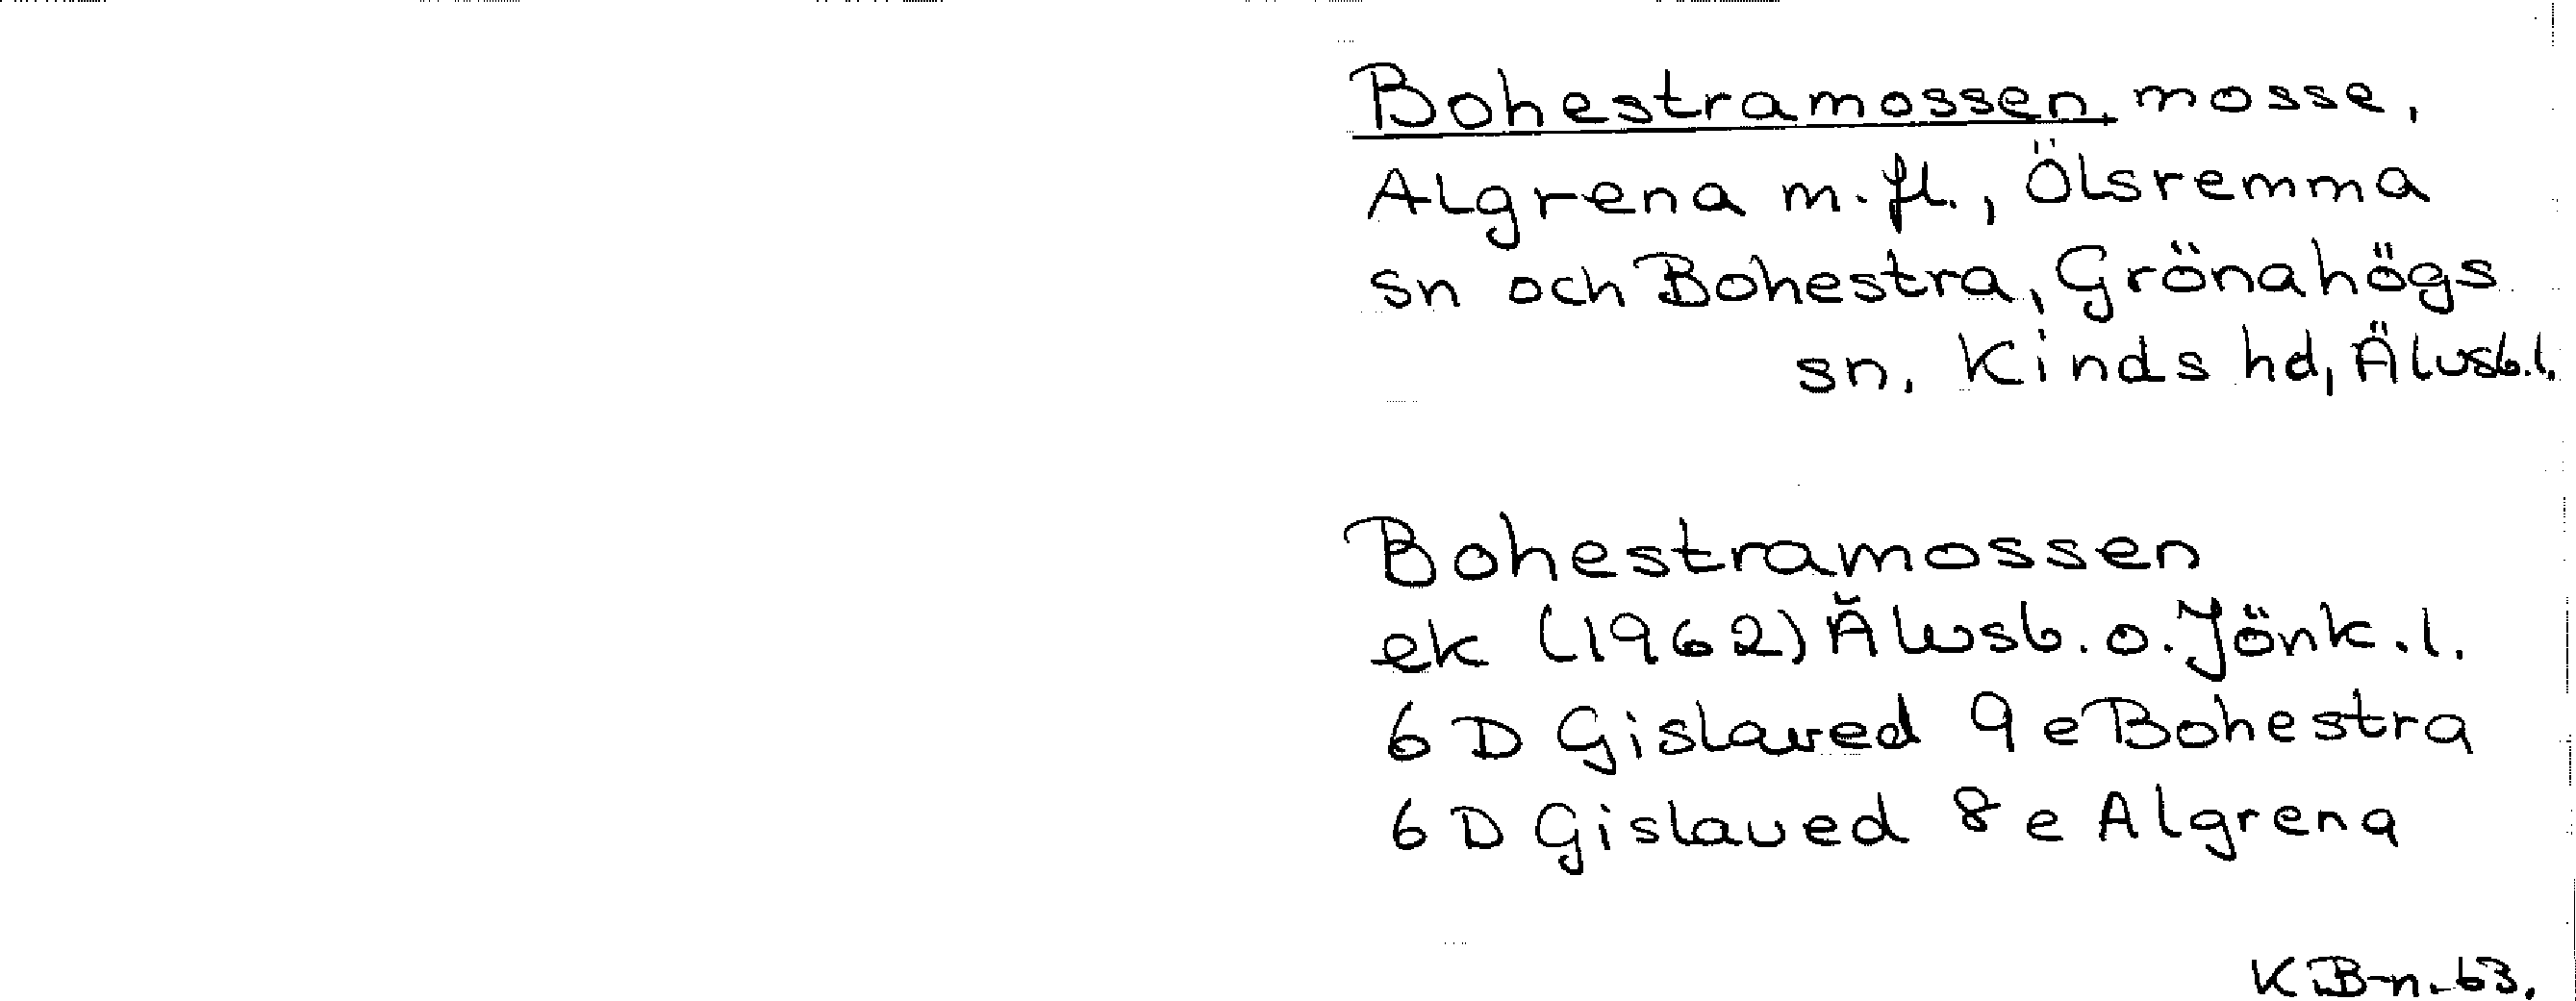 Bohestramossen, mosse,
Algrena m.fl., Ölsremma
sn och Bohestra, Grönahögs
sn. Kinds hd, Älvsb.l.
Bohestramossen
ek (1962) Älvsb. o. Jönk.l.
6 D Gislaved 9 e Bohestra
6 D Gislaved 8 e Algrena
K B-n. 63.